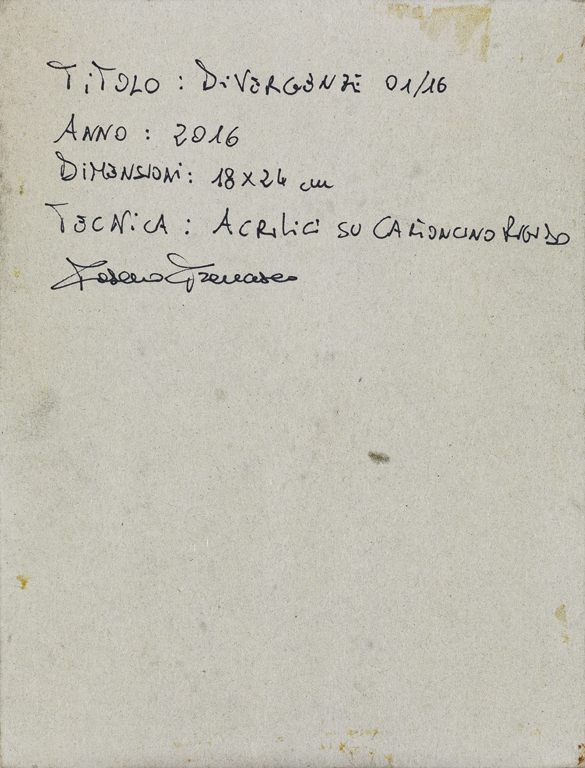 TITOLO : DIVERGENZE 01/16
ANNO : 2016
DIMENSIONI : 18 X 24 cm
TECNICA : ACRILICI SU CARTONCINO RIGIDO